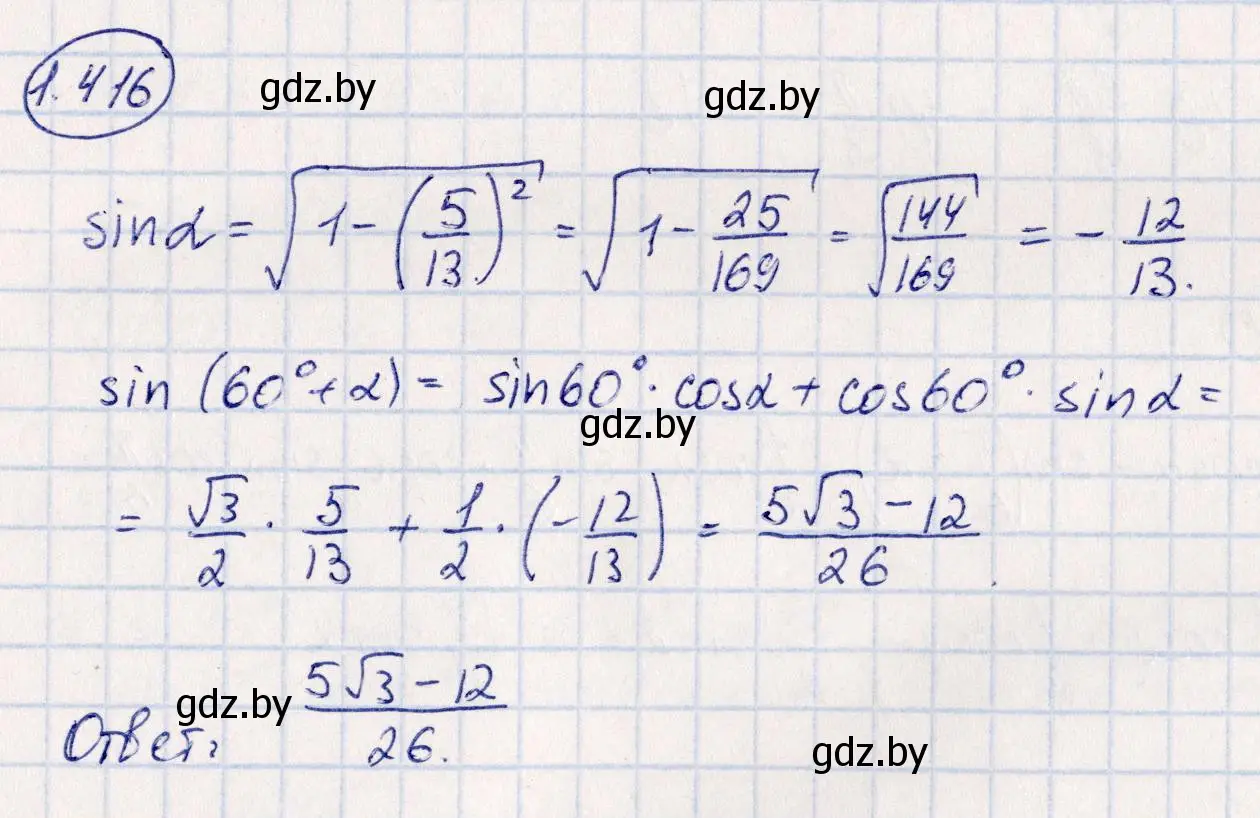 1.416
gdz.by
gdz.by
sinα = √(1-(5/13)²) = √(1-25/169) = √(144/169) = -12/13.
sin (60°+α) = sin60°·cosα + cos60°·sinα =
gdz.by
= √3/2 · 5/13 + 1/2 · (-12/13) = (5√3-12)/26.
gdz.by
Ответ: (5√3-12)/26.
gdz.by